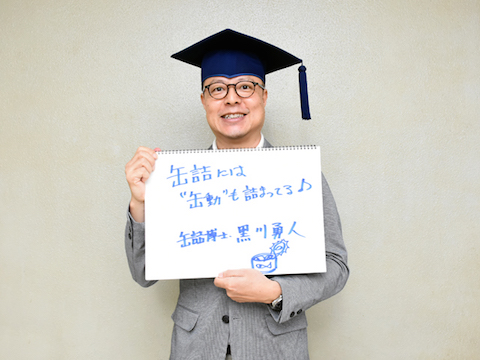 缶詰には
“缶動”も詰まってる♪
缶詰博士 黒川勇人